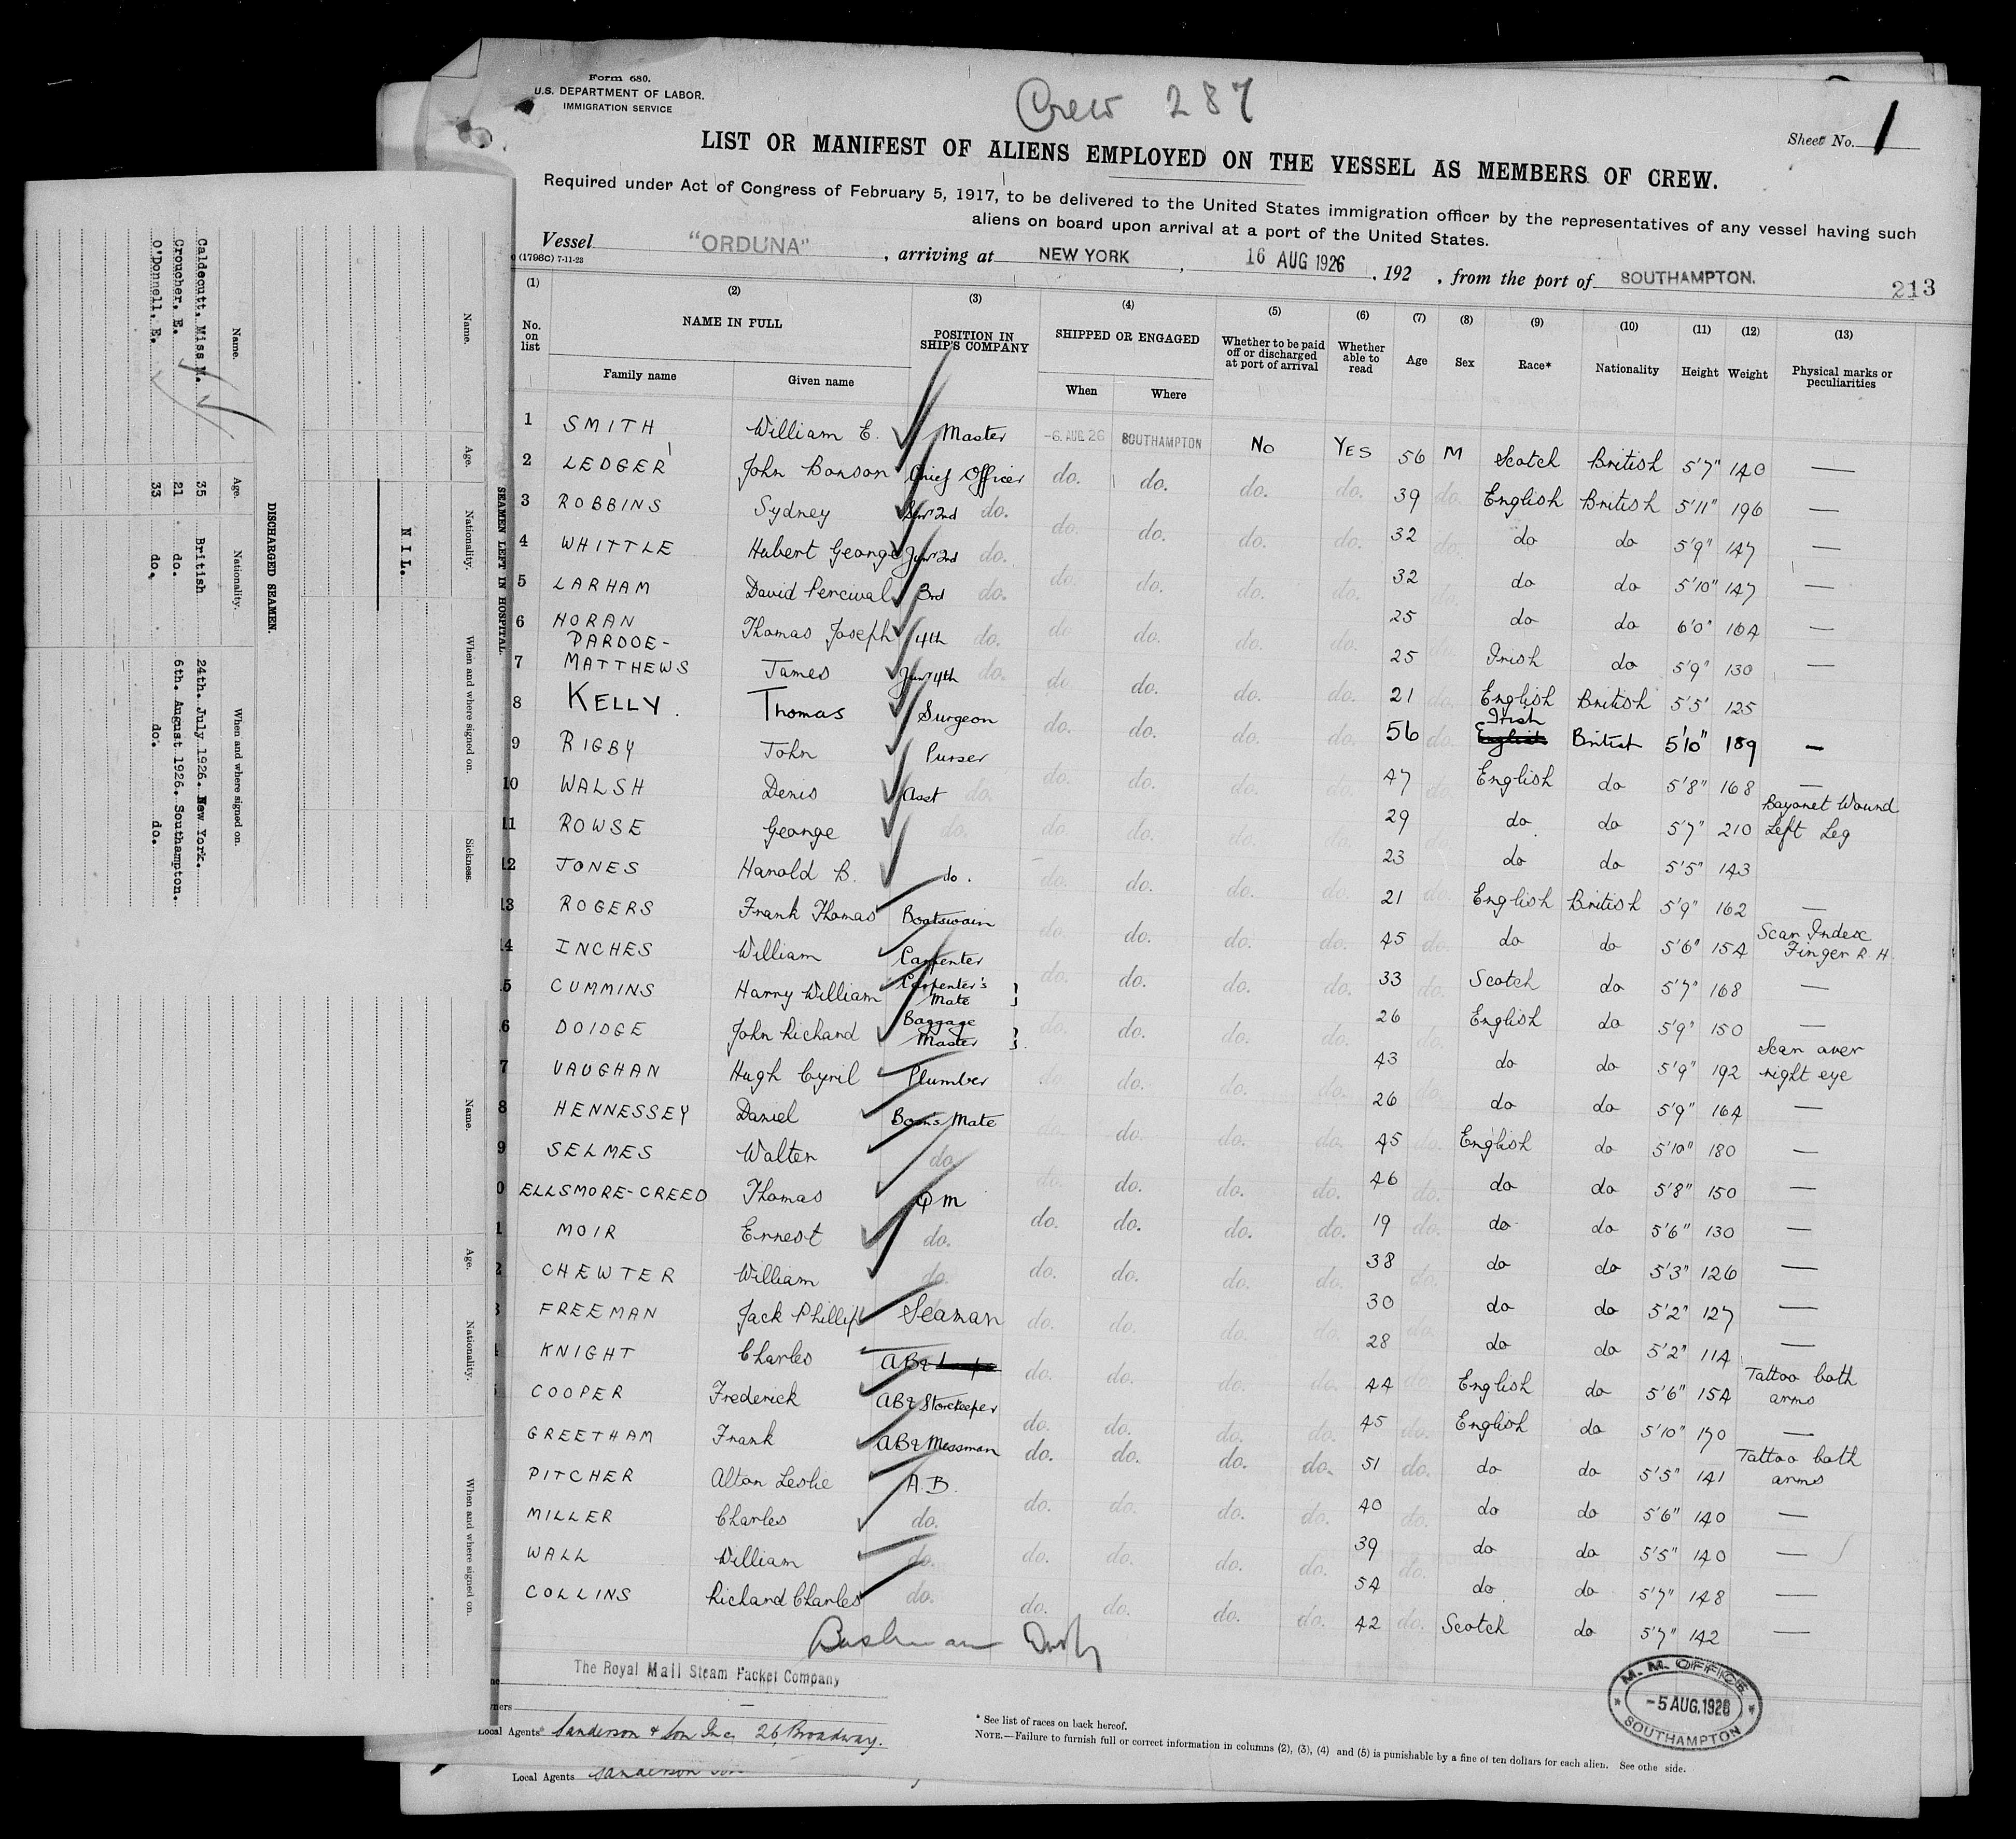 Form 680.
U.S. DEPARTMENT OF LABOR.
IMMIGRATION SERVICE
Crew 287
Sheet No. 1
LIST OR MANIFEST OF ALIENS EMPLOYED ON THE VESSEL AS MEMBERS OF CREW.
Required under Act of Congress of February 5, 1917, to be delivered to the United States immigration officer by the representatives of any vessel having such
aliens on board upon arrival at a port of the United States.
Vessel "ORDUNA", arriving at NEW YORK, 16 AUG 1926, 192 , from the port of SOUTHAMPTON.
(1798C) 7-11-23
213
(1) (2) (3) (4) (5) (6) (7) (8) (9) (10) (11) (12) (13)
No. on list NAME IN FULL POSITION IN SHIP'S COMPANY SHIPPED OR ENGAGED Whether to be paid off or discharged at port of arrival Whether able to read Age Sex Race* Nationality Height Weight Physical marks or peculiarities
Family name Given name When Where
1 SMITH William E. Master -6. AUG. 26 SOUTHAMPTON No YES 56 M Scotch British 5'7" 140 —
2 LEDGER John Bonson Chief Officer do. do. do. do. 39 do. English British 5'11" 196 —
3 ROBBINS Sydney Snr 2nd do. do. do. do. do. 32 do. do do 5'9" 147 —
4 WHITTLE Hubert George Jnr 2nd do. do. do. do. do. 32 do. do do 5'10" 147 —
5 LARHAM David Percival 3rd do. do. do. do. do. 25 do. do do 6'0" 164 —
6 HORAN Thomas Joseph 4th do. do. do. do. do. 25 do. Irish do 5'9" 130 —
7 PARDOE-MATTHEWS James Jnr 4th do. do. do. do. do. 21 do. English British 5'5" 125
8 KELLY. Thomas Surgeon do. do. do. do. 56 do. Irish English British 5'10" 189 —
9 RIGBY John Purser do. do. do. do. 47 English do 5'8" 168 —
10 WALSH Denis Asst do. do. do. do. do. 29 do do 5'7" 210 Bayonet Wound Left Leg
11 ROWSE George do. do. do. do. do. 23 do do 5'5" 143
12 JONES Harold B. do. do. do. do. do. 21 do. English British 5'9" 162 —
13 ROGERS Frank Thomas Boatswain do. do. do. do. 45 do. do do 5'6" 154 Scar Index Finger R H.
14 INCHES William Carpenter do. do. do. do. 33 do. Scotch do 5'7" 168 —
15 CUMMINS Harry William Carpenter's Mate do. do. do. do. 26 do. English do 5'9" 150 —
16 DOIDGE John Richard Baggage Master do. do. do. do. 43 do. do do 5'9" 192 Scar over right eye
7 VAUGHAN Hugh Cyril Plumber do. do. do. do. 26 do. do do 5'9" 164 —
8 HENNESSEY Daniel Bosn's Mate do. do. do. do. 45 do. English do 5'10" 180 —
9 SELMES Walter do. do. do. do. do. 46 do. do do 5'8" 150 —
0 ELLSMORE-CREED Thomas Q M do. do. do. do. 19 do. do do 5'6" 130 —
1 MOIR Ernest do. do. do. do. do. 38 do. do do 5'3" 126 —
2 CHEWTER William do. do. do. do. do. 30 do. do do 5'2" 127 —
3 FREEMAN Jack Phillip Seaman do. do. do. do. 28 do. do do 5'2" 114 —
KNIGHT Charles AB & do. do. do. do. 44 do. English do 5'6" 154 Tattoo both arms
COOPER Frederick AB & Storekeeper do. do. do. do. 45 do. English do 5'10" 170 —
GREETHAM Frank AB & Messman do. do. do. do. 51 do. do do 5'5" 141 Tattoo both arms
PITCHER Alton Leslie A.B. do. do. do. do. 40 do. do do 5'6" 140 —
MILLER Charles do. do. do. do. do. 39 do. do do 5'5" 140 —
WALL William do. 54 do do 5'7" 148 —
COLLINS Richard Charles do. do. do. do. do. 42 do. Scotch do 5'7" 142 —
The Royal Mail Steam Packet Company
Local Agents Sanderson & Son Inc. 26, Broadway.
Local Agents Sanderson
* See list of races on back hereof.
NOTE.—Failure to furnish full or correct information in columns (2), (3), (4) and (5) is punishable by a fine of ten dollars for each alien. See othe side.
M. M. OFFICE
-5 AUG. 1926
SOUTHAMPTON
SEAMEN LEFT IN HOSPITAL
Name. Age. Nationality. When and where signed on. Sickness.
NIL.
DISCHARGED SEAMEN.
Name. Age. Nationality. When and where signed on.
Caldecutt. Miss M. 35 British 24th. July 1926. New York.
Croucher. E. 21 do. 6th. August 1926. Southampton.
O'Donnell. E. 33 do. do. do.
Name. Age. Nationality. When and where signed on.